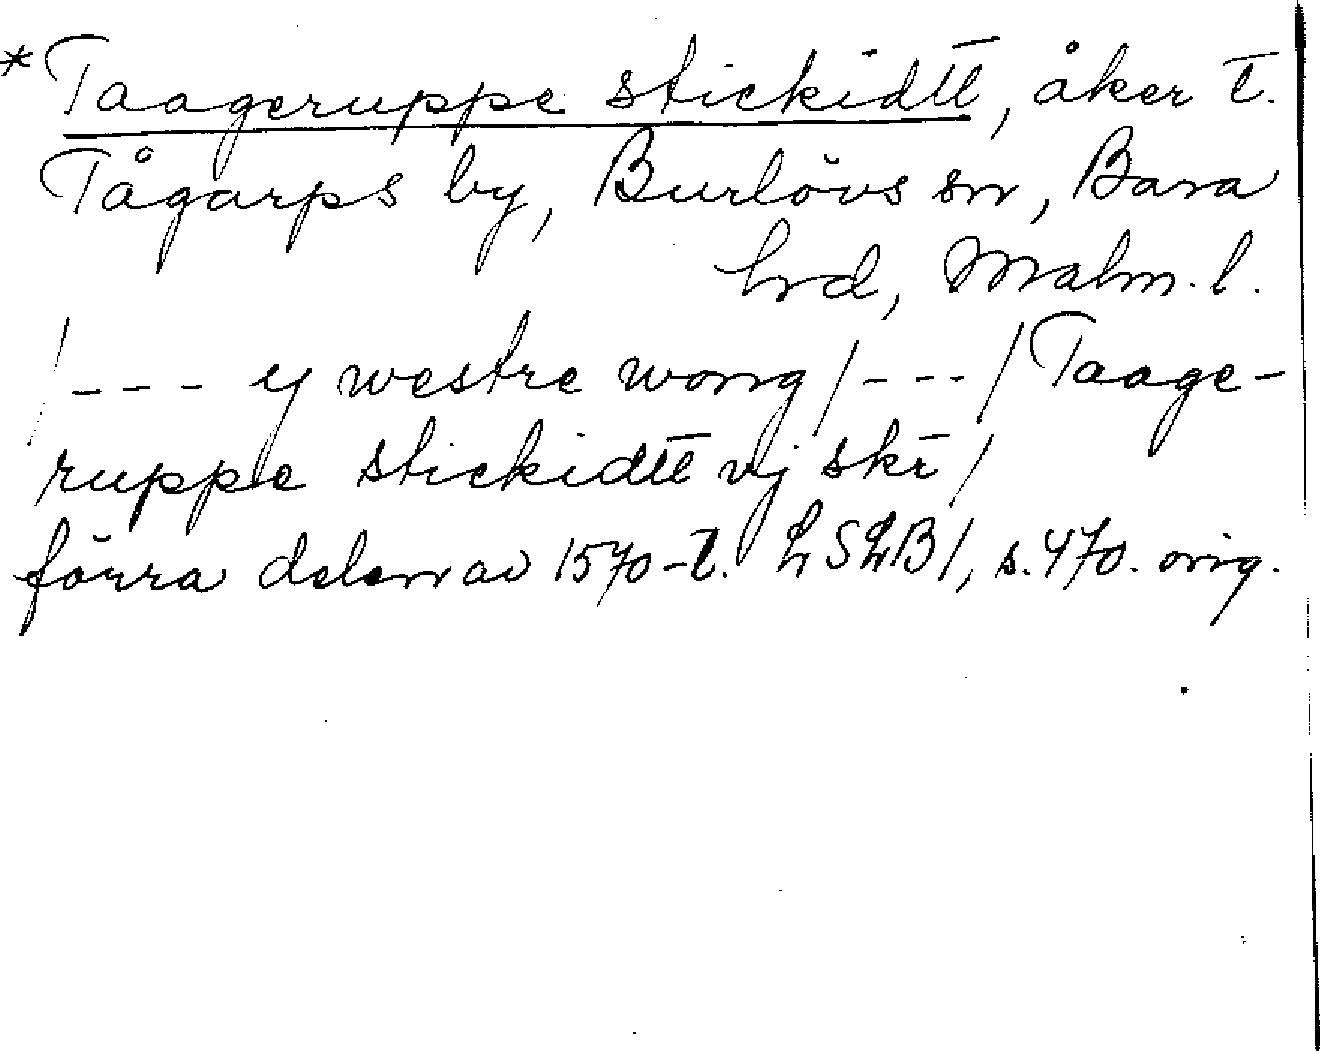 *Taageruppe stickidtt, åker t.
Tågarps by, Burlövs sn, Bara
hrd, Malm. l.
/--- y westre wong/---/Taage-
ruppe stickidtt vj skĩ/
förra delen av 1570-t. LSLB1, s. 470. orig.